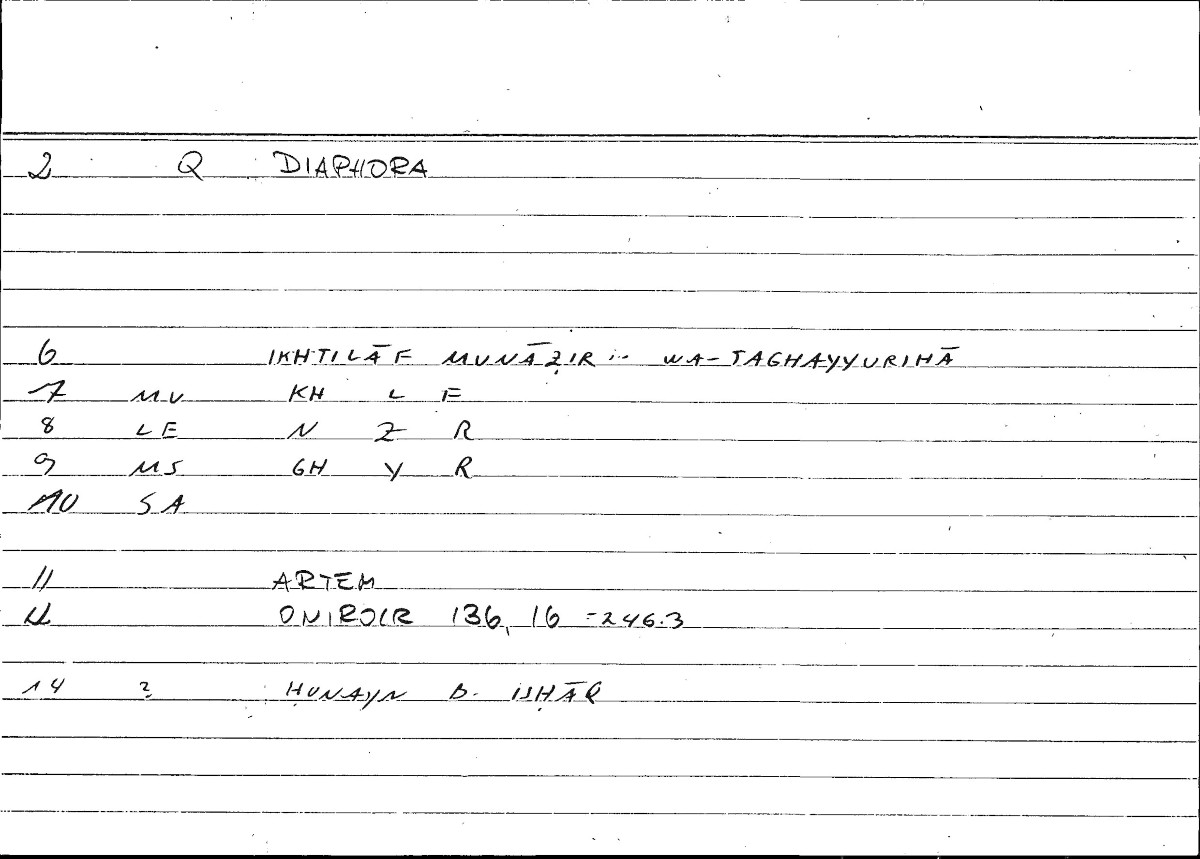 2 Q DIAPHORA
6 IKHTILĀF MUNĀẒIR :·· WA-TAGHAYYURIHĀ
7 MU KH L F
8 LE N Ẓ R
9 MS GH Y R
10 SA
11 ARTEM
12 ONIROCR 136, 16 = 246.3
14 2 ḤUNAYN B. ISḤĀQ